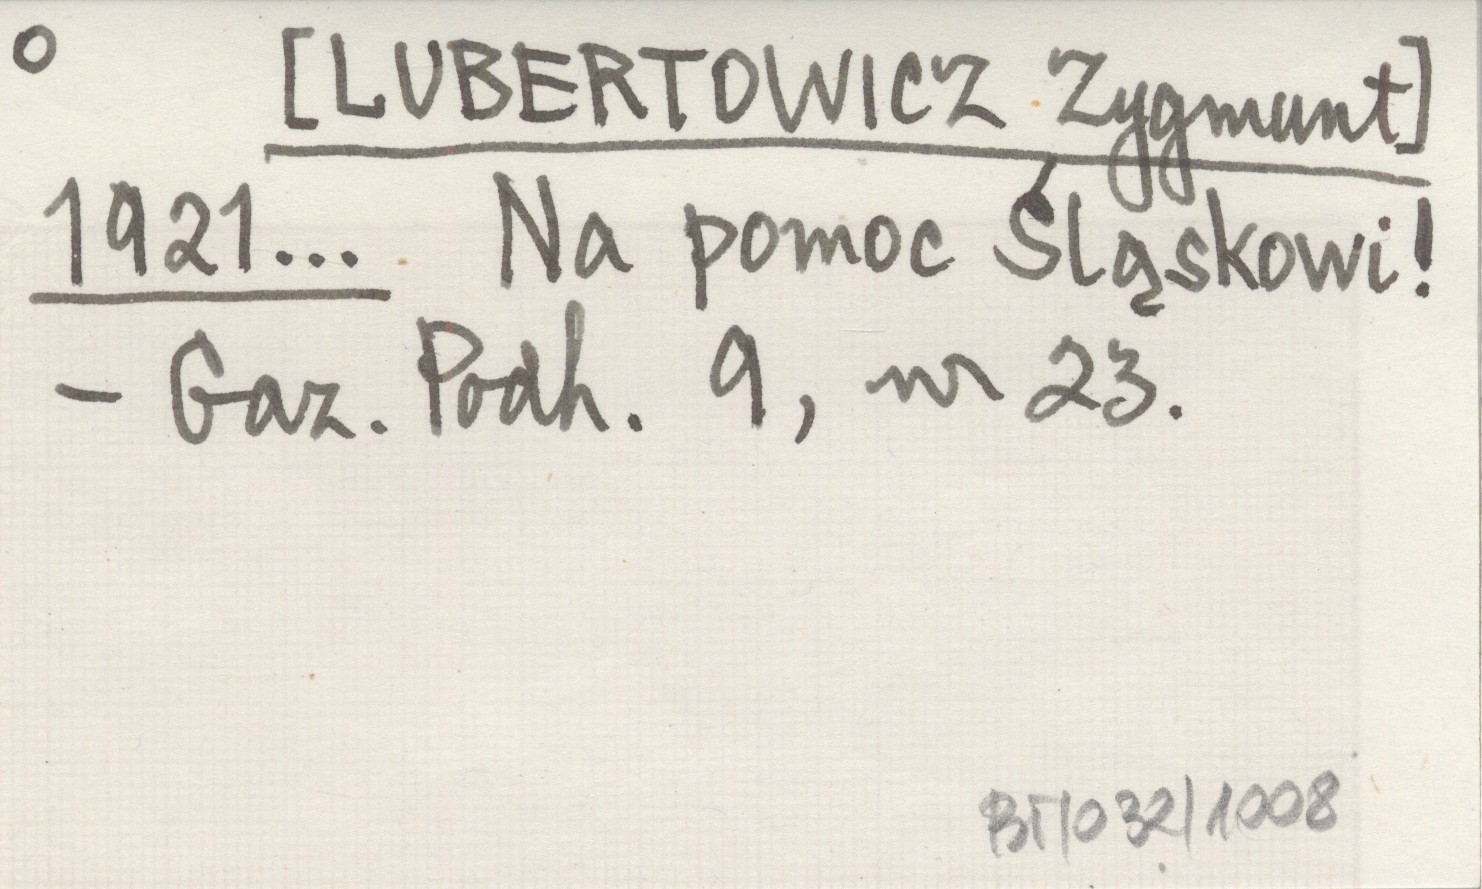 o [LUBERTOWICZ Zygmunt]
1921... Na pomoc Śląskowi!
- Gaz. Podh. 9, nr 23.
BT/032/1008